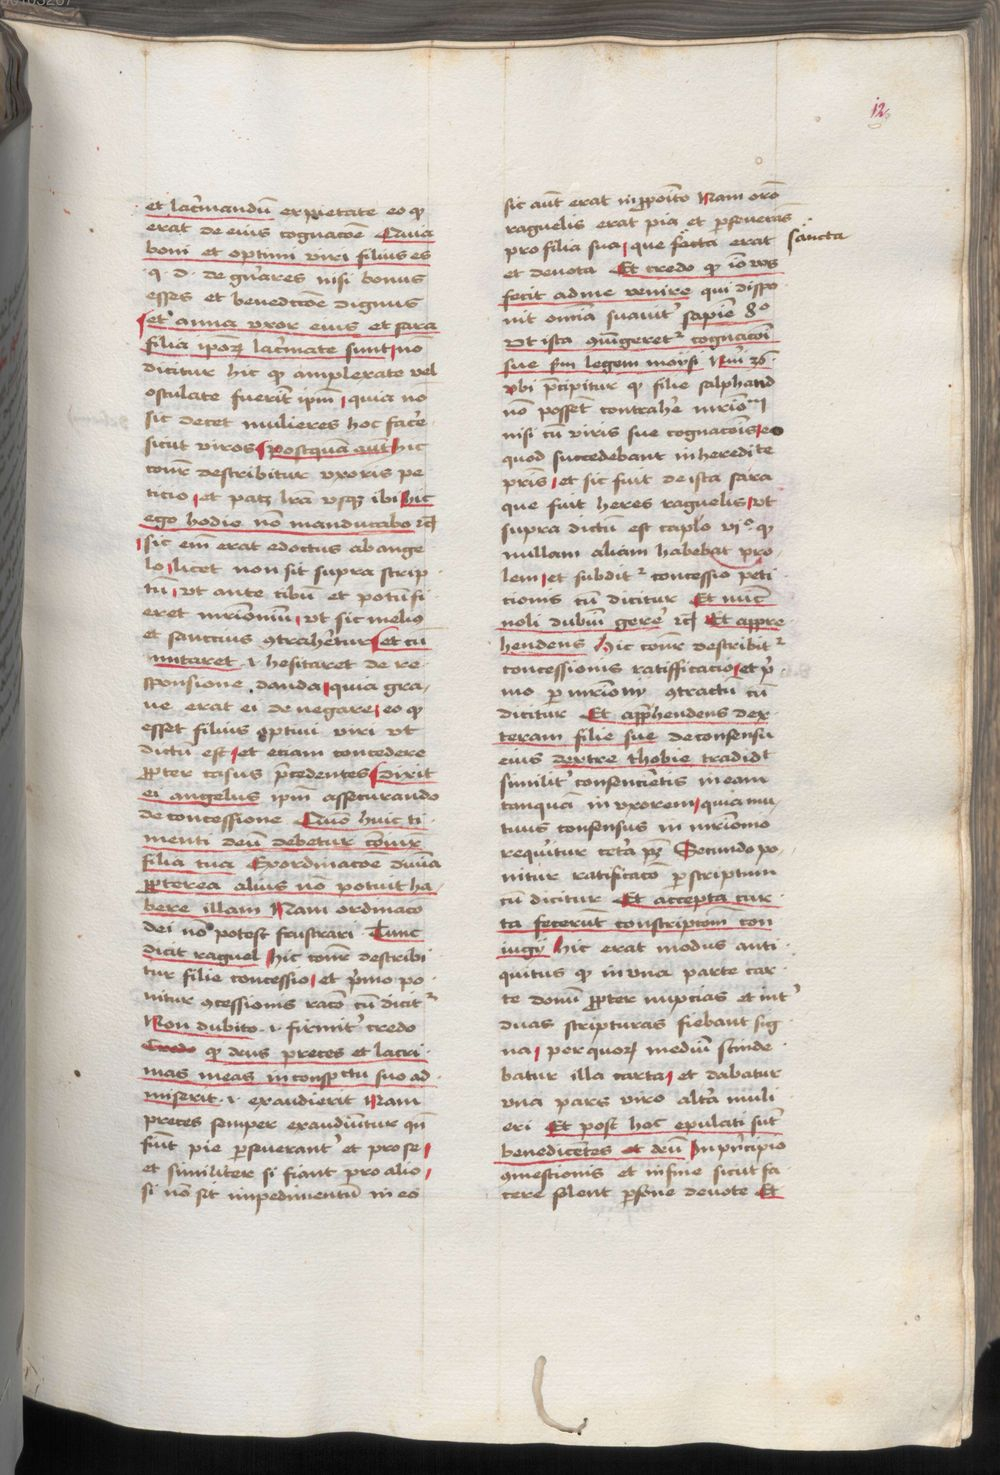 12
et lac̄mandū ex pietate eo qꝫ
erat de eius cognacōe Quia
boni et optimi viri filius es
q. d. de gn̄ares nisi bonus
esses et bn̄dictōe dignus
et anna vxor eius et sara
filia ipoꝝ lac̄mate sunt nō
dicitur hic qꝫ amplexate vel
osculate fuerīt ipm̄ quia nō
sic decet mulieres hoc fac̄e
sicut viros Postquā aūt hic
describitur vxoris pe
ticio et patꝫ lr̄a vsqꝫ ibi hic
ego hodie non manducabo ꝛc̄
sic em̄ erat edoctus ab ange
lo licet non sit supra scrip
tū vt ante cibū et potū fi
eret mr̄imoniū vt sic meliꝰ
et sanctius ꝯtrahēr̄tur et cū
mitaret .i. hesitaret de re
sponsione danda quia gra
ue erat ei denegare eo qꝫ
esset filius optimi viri vt
dictū est et eciam concedere
ꝓpter casus p̄cedentes dixit
ei angelus ipm̄ assecurando
de concessione Qm̄ huic ti
menti deū debetur
filia tua Ex ordinacōe diuīa
ꝓpterea alius non potuit ha
bere illam Nam ordinacō
dei nō potest frustrari Tunc
dicit raguel hic describi
tur filie concessio et p̄mo po
nitur ꝯcessionis racō cū dicitᷣ
Non dubito .i. firmit̄ credo
Credo qꝫ deus preces et lacri
mas meas in conspectu suo ad
miserit .i. exaudierit Nam
preces semper exaudiūtur qn̄
fiūt pie ꝑseuerant̄ et pro se
et similiter si fiant pro alio
si nō sit impedimentū in eo
sic aūt erat in ꝓposito Nam orō
raguelis erat pia et ꝑseuerās
pro filia sua que facta erat sancta
et deuota Et credo qꝫ iō vos
fecit ad me venire qui dispo
nit omīa suauit̄ sapiēn 8º
Vt ista ꝯiūgeretᷣ cognacōi
sue sm̄ legem moysi Nūi 36
vbi p̄cipitur qꝫ filie salphaad
nō possēt contrahe᷑ mr̄imoniū
nisi cū viris sue cognacōis eo
quod succedebant in heredite
pr̄is et sic fuit de ista sara
que fuit heres raguelis vt
supra dictū est caplō viº qꝫ
nullam aliam habebat pro
lem et subditᷣ concessio peti
cionis cū dicitur Et nūc
noli dubiū gerer̄ ꝛc̄ Et appre
hendens hic describitᷣ
concessionis ratifficacio et p̄
mo ꝑ mr̄imonij ꝯtractū cū
dicitur Et app̄hendens dex
teram filie sue de consensu
eius dextre thobie tradidt
similit̄ consencientis in eam
tanquā in vxorem quia mu
tuus consensus in mr̄imonio
requir̄itur cetera pꝫ Secundo po
nitur ratificacō ꝑ scriptum
cū dicitur Et accepta car
ta fecerūt conscriptōem con
iugij hic erat modus anti
quitus qꝫ in vna parte car
te donū ꝓpter nupcias et int̄
duas scripturas fiebant sig
na per quoꝝ mediū scinde
batur illa carta et dabatur
vna pars viro alt̄a muli
eri Et post hoc epulati sūt
benedicētes et deū In p̄ncipio
ꝯmestionis et in fine sicut fa
cere solent ꝑsone deuote Et